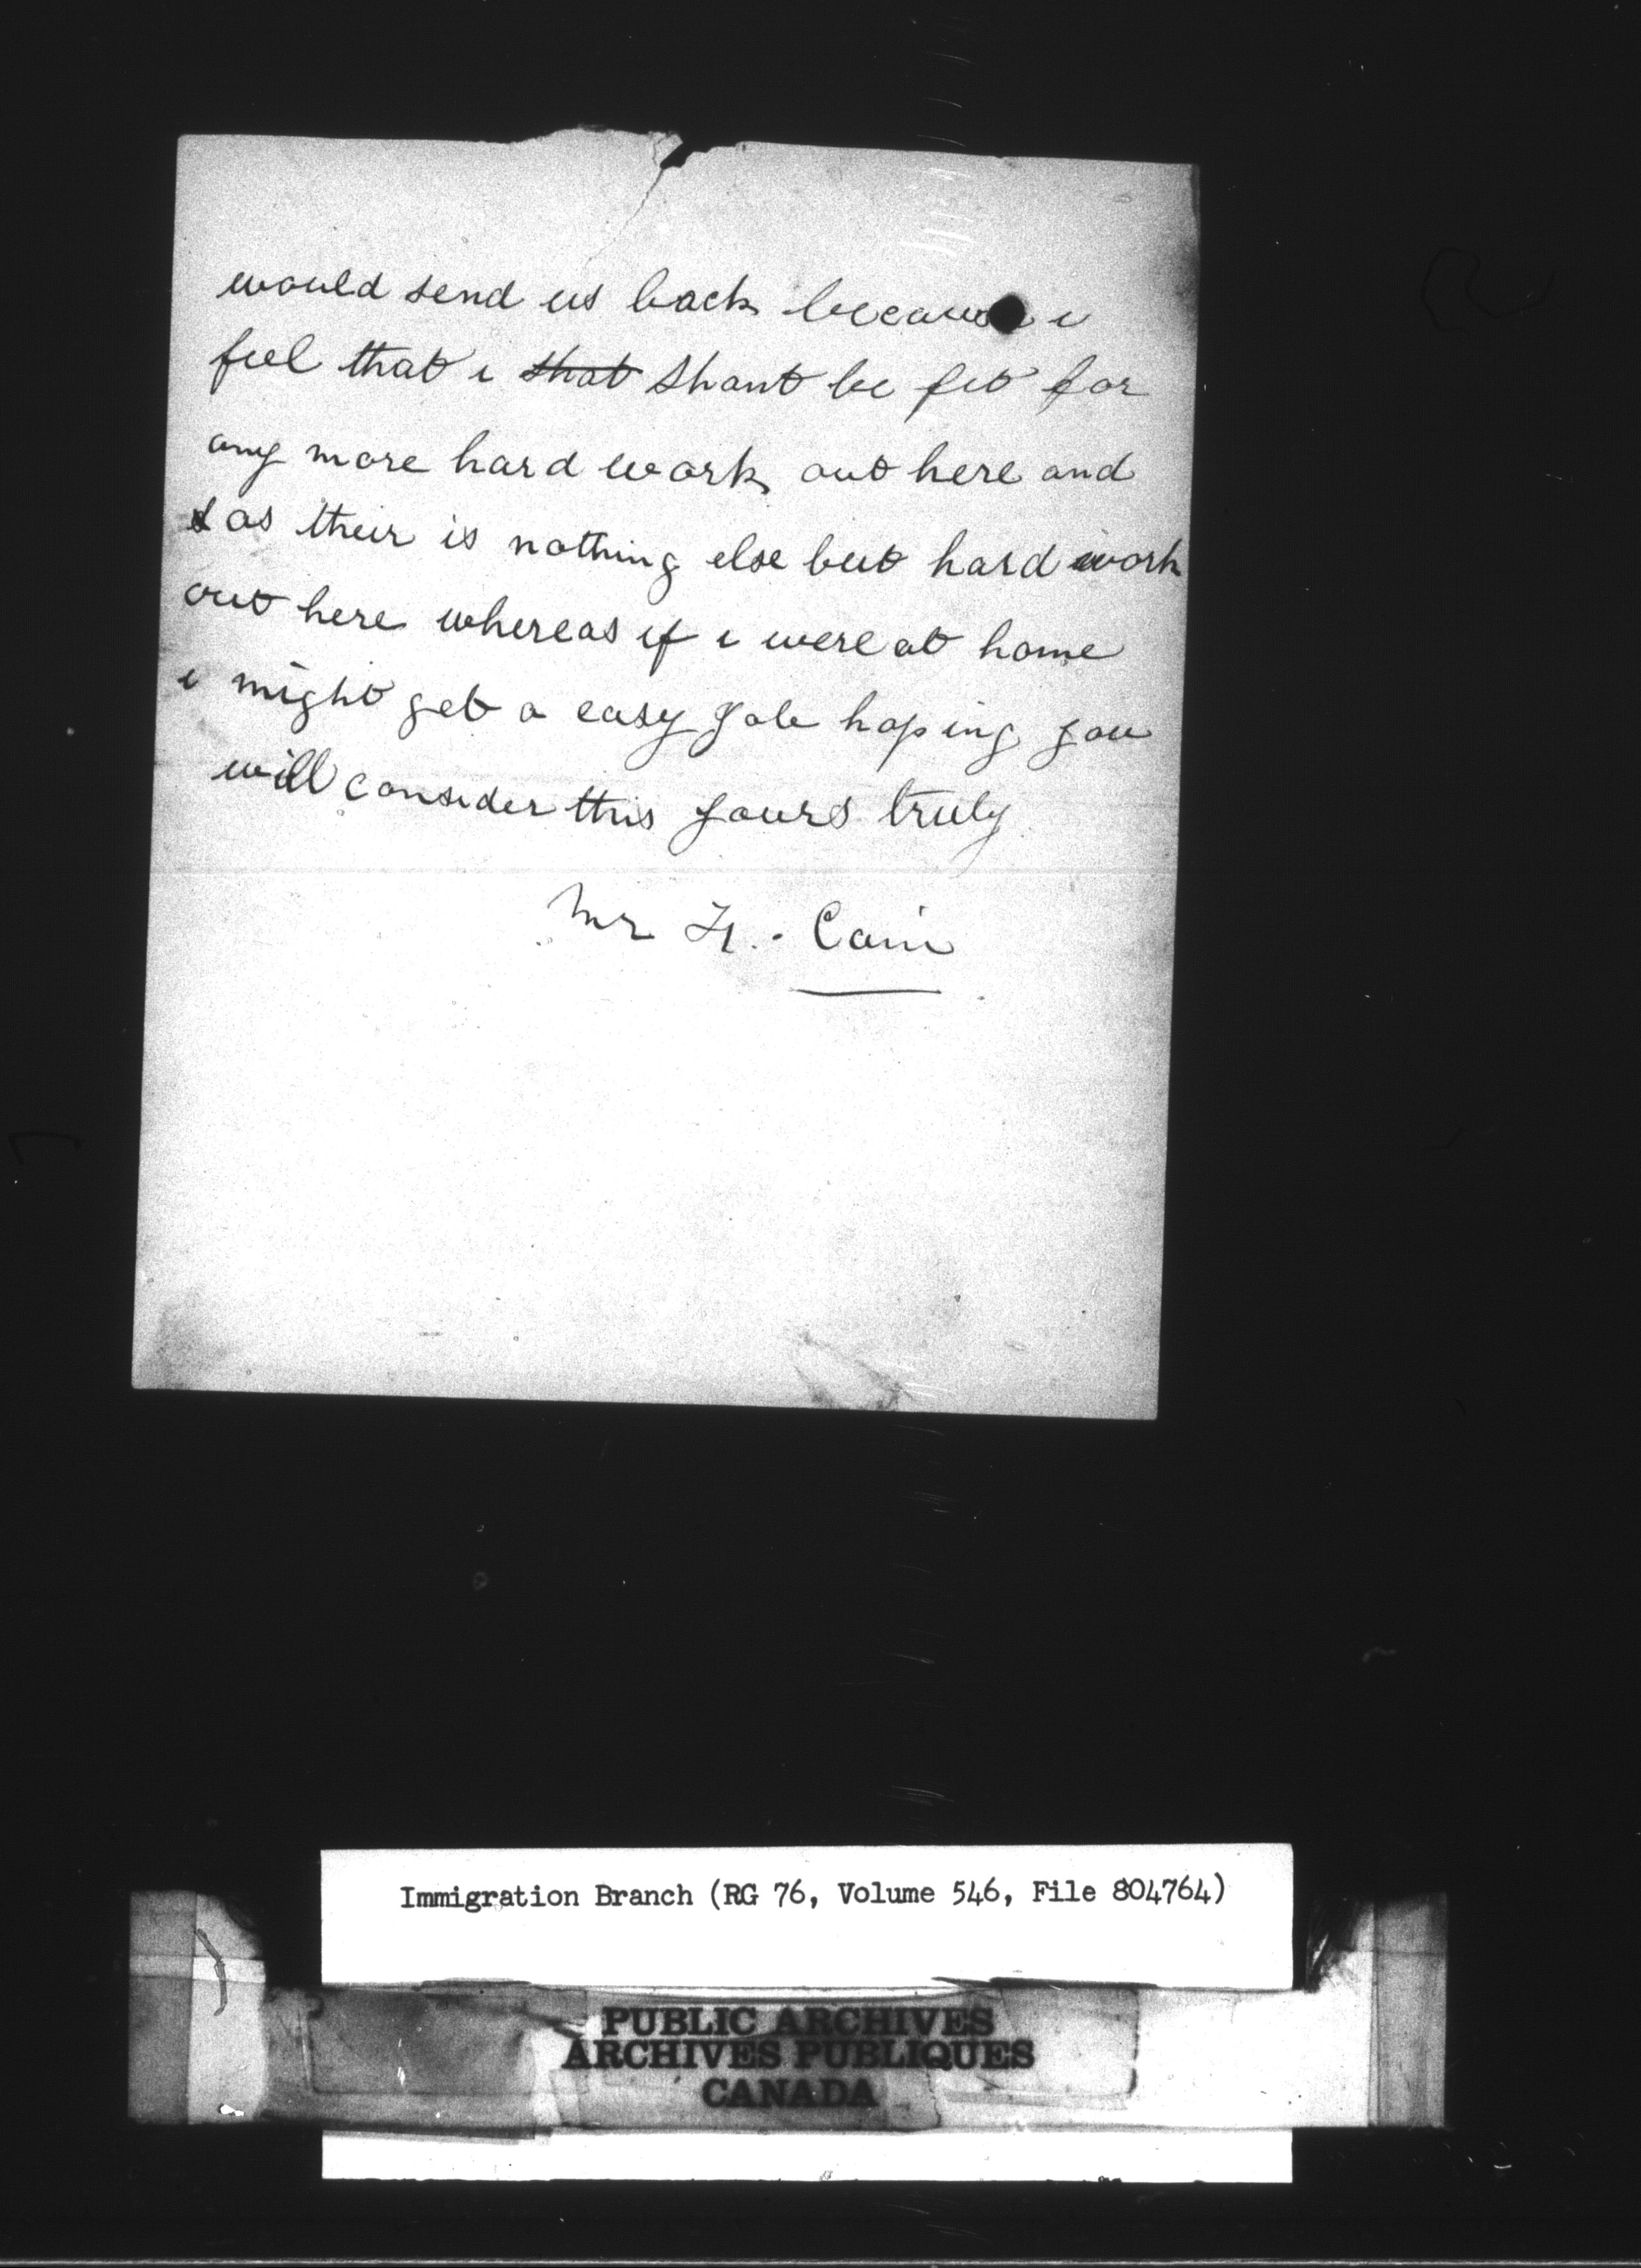 would send us back because i
feel that i ~~that~~ shant be fit for
any more hard work out here and
as their is nothing else but hard work
out here whereas if i were at home
i might get a easy Job hoping you
will consider this yours truly
Mr H. Cain
Immigration Branch (RG 76, Volume 546, File 804764)
PUBLIC ARCHIVES
ARCHIVES PUBLIQUES
CANADA